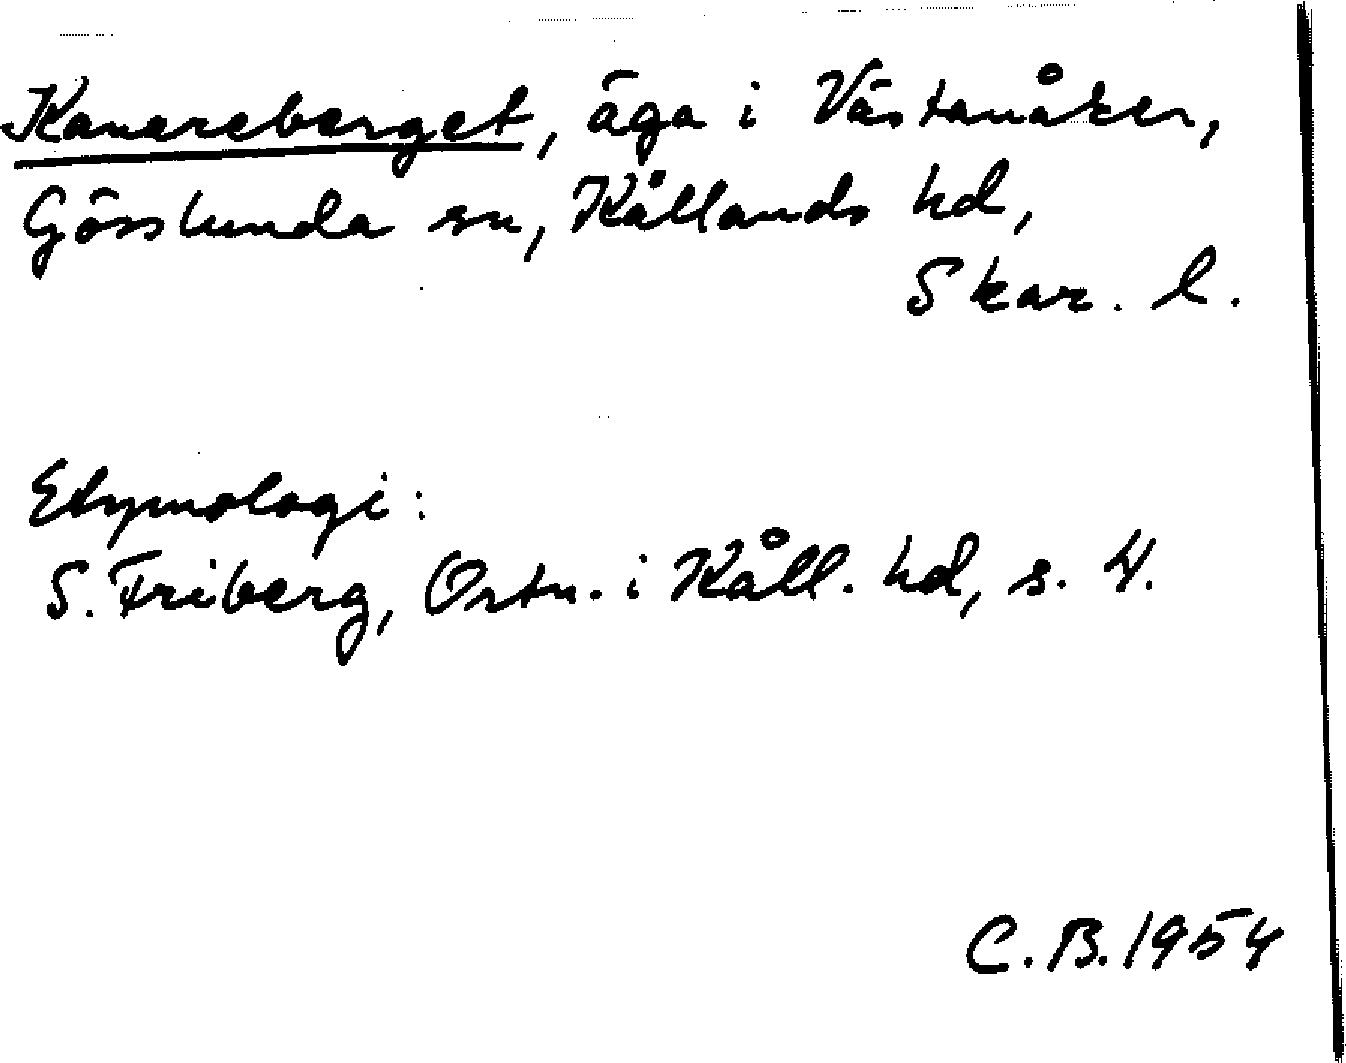 Kanareberget, äga i Västanåker,
Gösslunda sn, Kållands hd,
Skar. l.
Etymologi:
S. Friberg, Ortn. i Kåll. hd, s. 4.
C. B. 1954